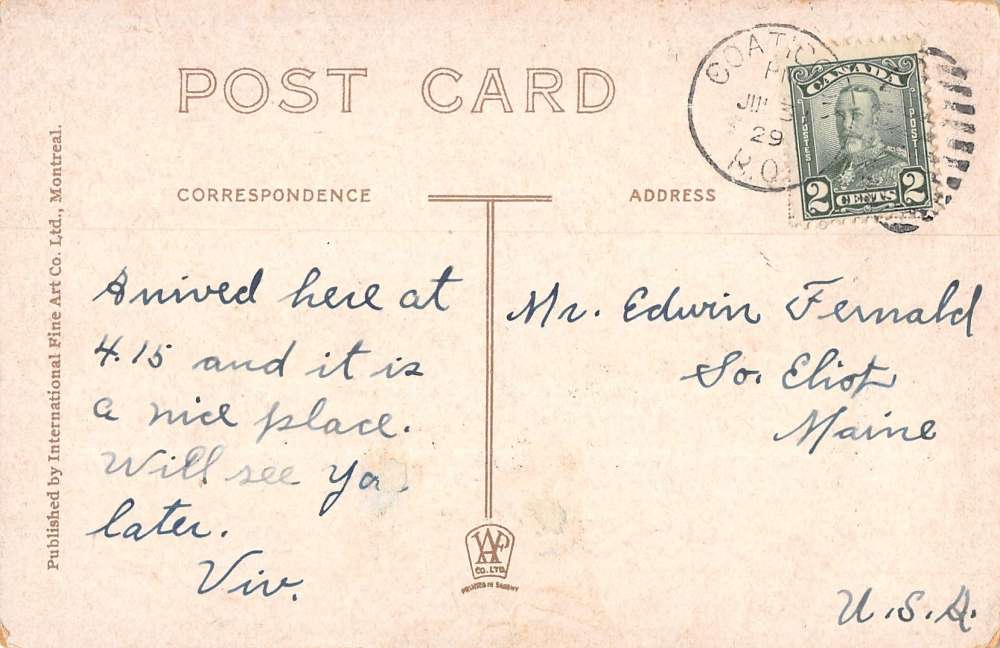 POST CARD
CORRESPONDENCE
ADDRESS
Published by International Fine Art Co. Ltd., Montreal.
COATIC
PM
29
CANADA
POSTES
POST
2 CENTS 2
Arrived here at
4.15 and it is
a nice place.
Will see you
later.
Viv.
Mr. Edwin Fernald
So. Eliot
Maine
U.S.A.
CO. LTD.
PRINTED IN SAXONY